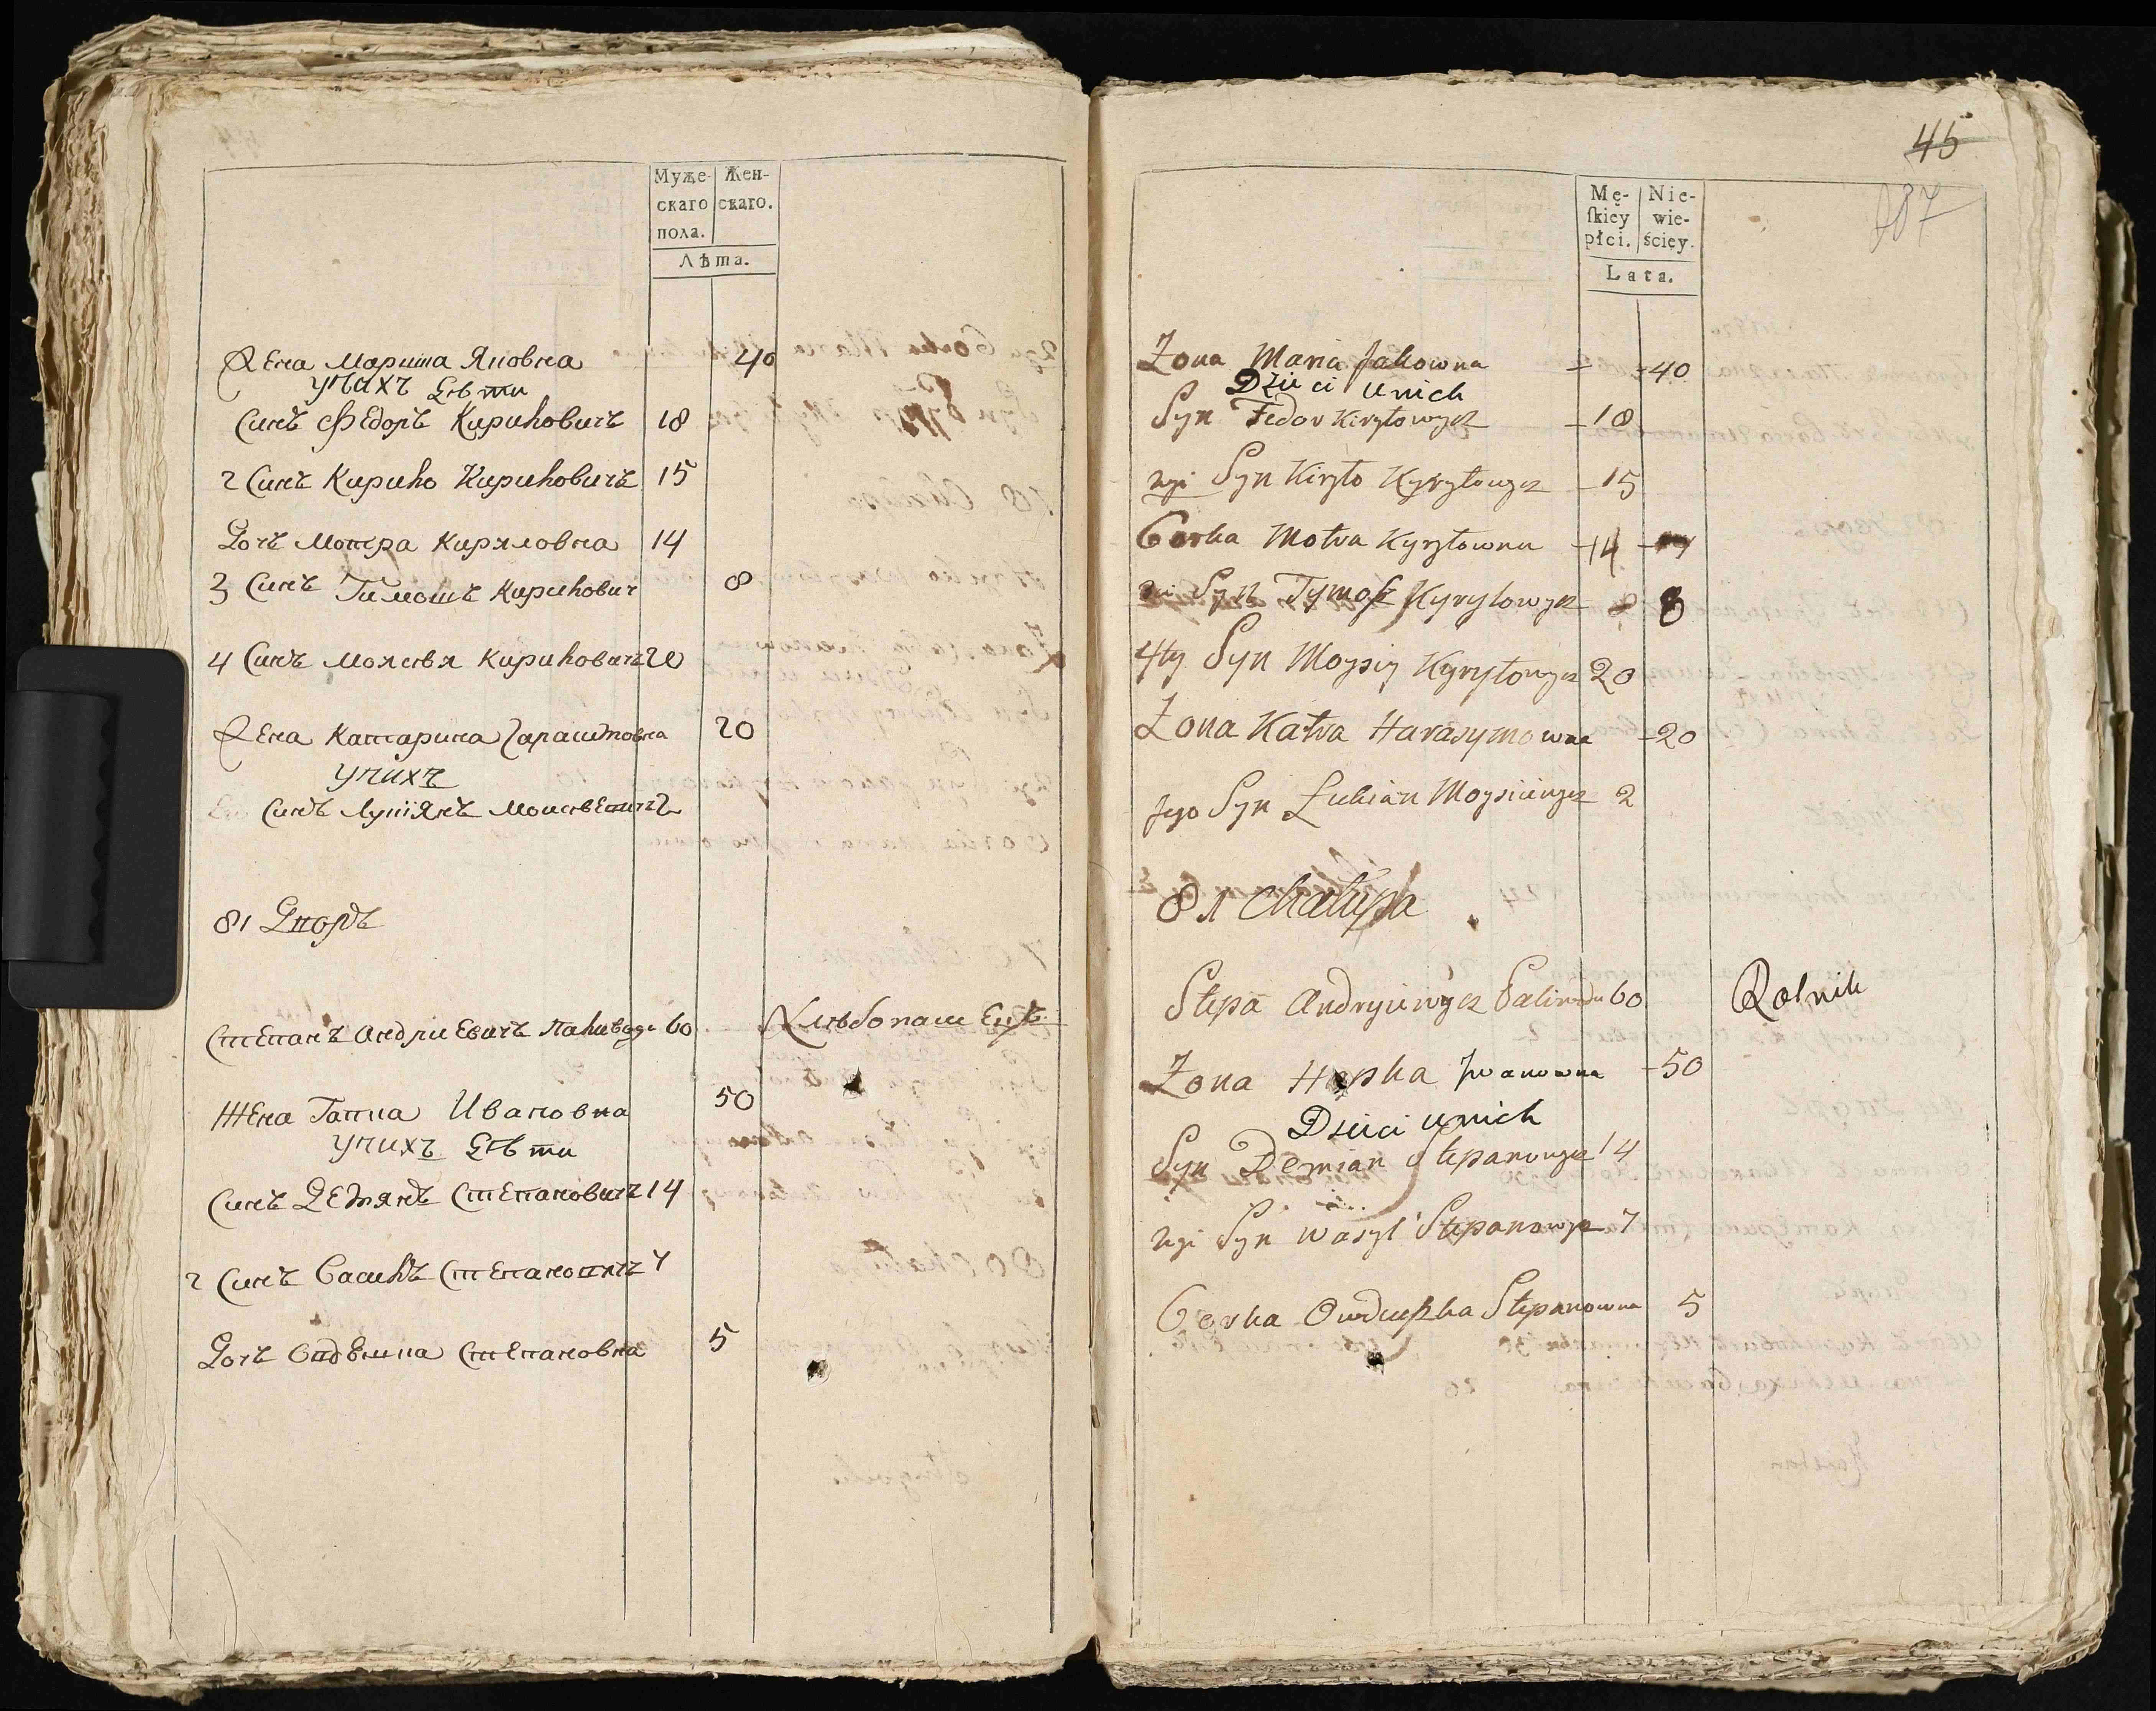 Муже-
скаго
пола.
Жен-
скаго.
Лѣта.
Жена Марина Яковна 40
У нихъ дѣти
Синъ Федоръ Кириловичъ 18
2 Синъ Кирило Кириловичъ 15
Дочь Мотра Кириловна 14
3 Синъ Тимошъ Кирилович 8
4 Синъ Моисѣя Кириловичъ 20
Жена Катарина Гарасимовна 20
У нихъ
Синъ Лукіянъ Моисѣевичъ 2
81 Дворъ
Степанъ Андриевичъ Паливода 60 Хлѣбопашецъ
Жена Гапка Ивановна 50
У нихъ дѣти
Синъ Демянъ Степановичъ 14
2 Синъ Василь Степановичъ 7
Дочь Овдѣшка Степановна 5
45
187
Mę-
skiey
płci.
Nie-
wie-
ściey.
Lata.
Zona Maria Jakowna 40
Dzieci u nich
Syn Fedor Kiryłowycz 18
2gi Syn Kiryło Kyryłowycz 15
Corka Motra Kyryłowna 14
3ci Syn Tymosz Kyryłowycz 8
4ty Syn Moysiy Kyryłowycz 20
Zona Katra Harasymowna 20
Jego Syn Łukian Moysiiewycz 2
81 Chałupa
Stepan Andryiewycz Paliwoda 60 Rolnik
Zona Hapka Iwanowna 50
Dzieci u nich
Syn Demian Stepanowycz 14
2gi Syn Wasyl Stepanowycz 7
Corka Owduszka Stepanowna 5